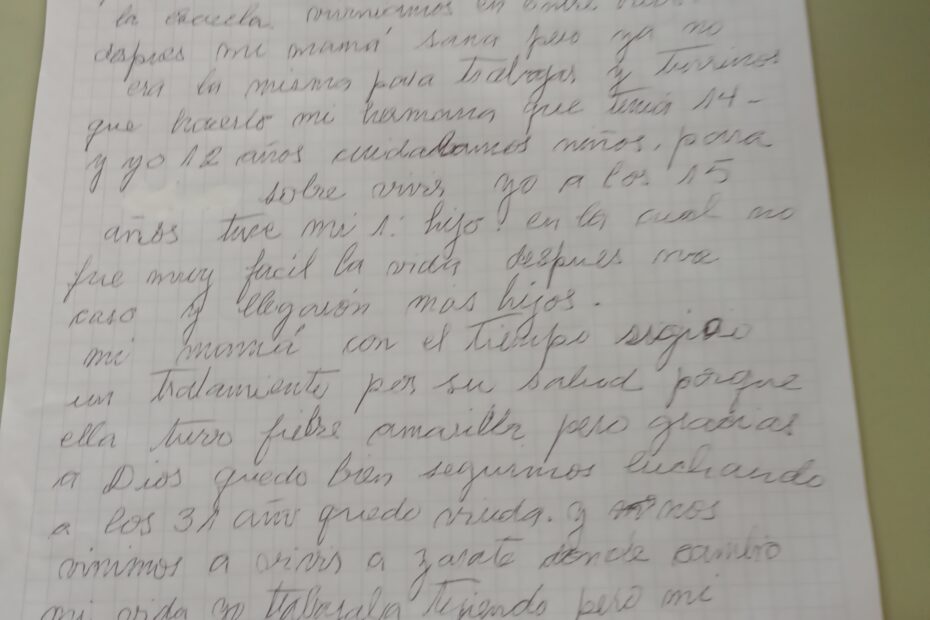 la escuela vinimos en entre
despues mi mamá sana pero ya no
era la misma para trabajar y tuvimos
que hacerlo mi hermana que tenía 14-
y yo 12 años cuidabamos niños. para
sobre vivir yo a los 15
años tuve mi 1: hijo. en la cual no
fue muy facil la vida despues me
caso y llegarón más hijos.
mi mamá con el tiempo sigio
un tratamiento por su salud porque
ella tuvo fiebre amarilla pero gracias
a Dios quedo bien seguimos luchando
a los 31 año quedo viuda. y nos
vinimos a vivir a zarate donde cambio
mi vida yo trabajaba tejiendo pero mi